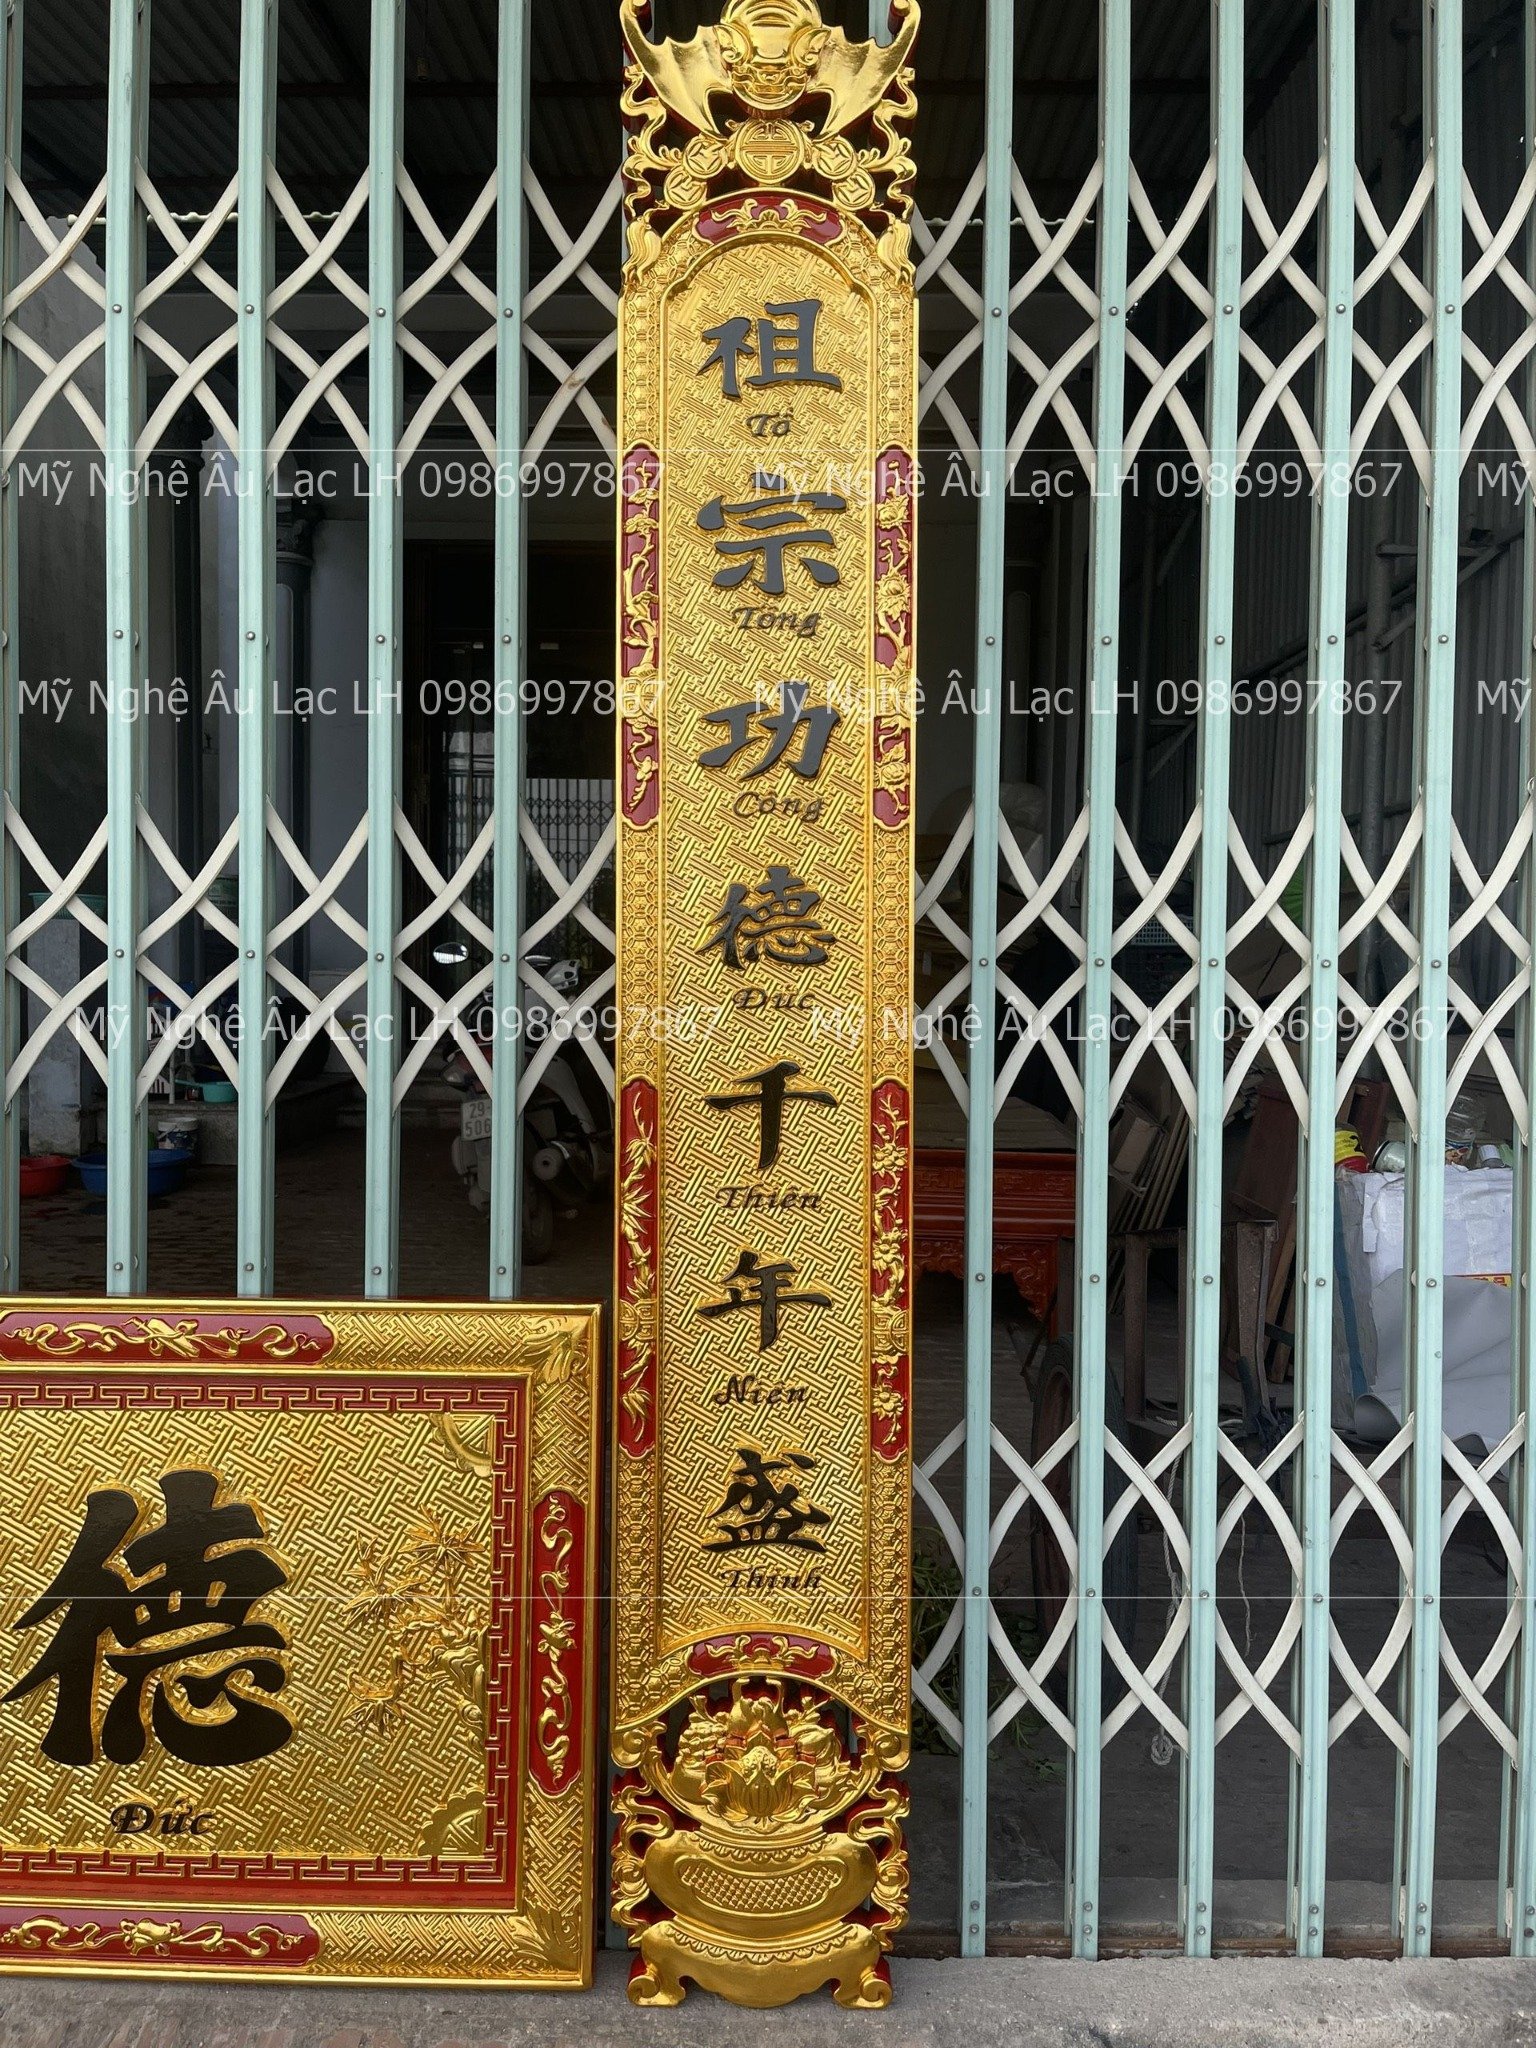 祖
Tổ
宗
Tông
功
Công
德
Đức
千
Thiên
年
Niên
盛
Thịnh
德
Đức
Mỹ Nghệ Âu Lạc LH 0986997867
Mỹ Nghệ Âu Lạc LH 0986997867
Mỹ
Mỹ Nghệ Âu Lạc LH 0986997867
Mỹ Nghệ Âu Lạc LH 0986997867
Mỹ
Mỹ Nghệ Âu Lạc LH 0986997867
Mỹ Nghệ Âu Lạc LH 0986997867